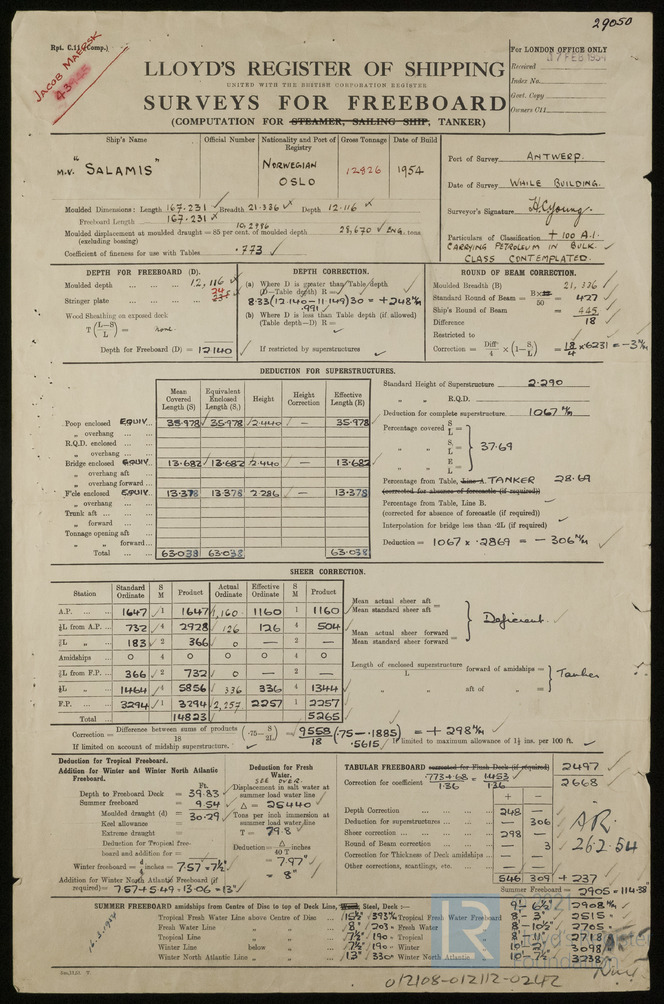 29050
Rpt. C.11 (Comp.)
JACOB MAERSK
For LONDON OFFICE ONLY
17 FEB 1954
Received
Index No.
Govt. Copy
Owners C11
LLOYD'S REGISTER OF SHIPPING
UNITED WITH THE BRITISH CORPORATION REGISTER
SURVEYS FOR FREEBOARD
(COMPUTATION FOR STEAMER, SAILING SHIP, TANKER)
Ship's Name Official Number Nationality and Port of Registry Gross Tonnage Date of Build
M.V. "SALAMIS" NORWEGIAN OSLO 12826 1954
Port of Survey ANTWERP.
Date of Survey WHILE BUILDING.
Surveyor's Signature H.C.Young.
Particulars of Classification + 100 A.1.
CARRYING PETROLEUM IN BULK.
CLASS CONTEMPLATED.
Moulded Dimensions: Length 167.231 Breadth 21.336 Depth 12.116
Freeboard Length 167.231
10.2986
Moulded displacement at moulded draught = 85 per cent. of moulded depth 28,670 ENG. tons
(excluding bossing)
Coefficient of fineness for use with Tables .773
DEPTH FOR FREEBOARD (D).
Moulded depth 12.116
Stringer plate 24
Wood Sheathing on exposed deck
T (L-S/L) = none.
Depth for Freeboard (D) = 12140
DEPTH CORRECTION.
(a) Where D is greater than Table depth
(D-Table depth) R =
8.33 (12.140-11.149) 30 = +248 m/m
.991
(b) Where D is less than Table depth (if allowed)
(Table depth-D) R =
If restricted by superstructures
ROUND OF BEAM CORRECTION.
Moulded Breadth (B) 21,336
Standard Round of Beam = B×12/50 = 427
Ship's Round of Beam = 445
Difference 18
Restricted to
Correction = Diff/4 × (1-S/L) = 18/4 × 6231 = -3 m/m
DEDUCTION FOR SUPERSTRUCTURES.
Mean Covered Length (S) Equivalent Enclosed Length (S₁) Height Height Correction Effective Length (E)
Poop enclosed EQUIV. 35.978 35.978 2.440 — 35.978
„ overhang
R.Q.D. enclosed
„ overhang
Bridge enclosed EQUIV. 13.682 13.682 2.440 — 13.682
„ overhang aft
„ overhang forward
F'cle enclosed EQUIV. 13.378 13.378 2.286 — 13.378
„ overhang
Trunk aft
„ forward
Tonnage opening aft
„ „ forward
Total 63.038 63.038 63.038
Standard Height of Superstructure 2.290
„ „ R.Q.D.
Deduction for complete superstructure 1067 m/m
Percentage covered S/L =
„ „ S₁/L = 37.69
„ „ E/L =
Percentage from Table, Line A. TANKER 28.69
(corrected for absence of forecastle (if required))
Percentage from Table, Line B.
(corrected for absence of forecastle (if required))
Interpolation for bridge less than .2L (if required)
Deduction = 1067 × .2869 = - 306 m/m
SHEER CORRECTION.
Station Standard Ordinate S M Product Actual Ordinate Effective Ordinate S M Product
A.P. 1647 1 1647 1,160 1160 1 1160
⅙L from A.P. 732 4 2928 126 126 4 504
⅓L „ 183 2 366 0 — 2 —
Amidships 0 4 0 0 0 4 0
⅓L from F.P. 366 2 732 0 — 2 —
⅙L „ 1464 4 5856 336 336 4 1344
F.P. 3294 1 3294 2,257 2257 1 2257
Total 14823 5265
Mean actual sheer aft
Mean standard sheer aft =
Mean actual sheer forward
Mean standard sheer forward =
Deficient.
Length of enclosed superstructure forward of amidships =
„ „ aft of „ =
Tanker
Correction = Difference between sums of products/18 (.75 - S/2L) = 9558/18 (.75 - .1885) = + 298 m/m
.5615
If limited on account of midship superstructure.
If limited to maximum allowance of 1½ ins. per 100 ft.
Deduction for Tropical Freeboard.
Addition for Winter and Winter North Atlantic Freeboard.
Ft.
Depth to Freeboard Deck = 39.83
Summer freeboard = 9.54
Moulded draught (d) = 30.29
Keel allowance
Extreme draught =
Deduction for Tropical freeboard and addition for =
Winter freeboard = d/4 inches = 7.57 = 7½"
Addition for Winter North Atlantic Freeboard (if required) = 7.57 + 5.49 = 13.06 = 13"
Deduction for Fresh Water.
SEE OVER.
Displacement in salt water at summer load water line
Δ = 25440
Tons per inch immersion at summer load water line
T = 79.8
Deduction = Δ/40 T inches
= 7.97"
= 8"
TABULAR FREEBOARD corrected for Flush Deck (if required) 2497
Correction for coefficient .773+.68/1.36 = 1453/1.36 2668
+ —
Depth Correction 248 —
Deduction for superstructures — 306
Sheer correction 298 —
Round of Beam correction — 3
Correction for Thickness of Deck amidships — —
Other corrections, scantlings, etc. — —
546 309 + 237
Summer Freeboard = 2905 = 114.38"
26.2.54
SUMMER FREEBOARD amidships from Centre of Disc to top of Deck Line, Wood, Steel, Deck :— 9'- 6½" 2908 m/m
Tropical Fresh Water Line above Centre of Disc 15½" 393 m/m Tropical Fresh Water Freeboard 8'- 3" 2515
Fresh Water Line „ „ 8" 203 Fresh Water „ 8'- 10½" 2705
Tropical Line „ „ 7½" 190 Tropical „ 8'- 11" 2718
Winter Line below „ 7½" 190 Winter „ 10'- 2" 3098
Winter North Atlantic Line „ „ 13" 330 Winter North Atlantic „ 10'- 7½" 3238
16.3.1954
012108-012112-0242